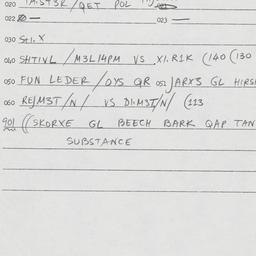 020 /QET POL
022 — 023 —
030 St1.X
040 SHTIVL / M3L14PM VS X1.R1K (140 (130
050 FUN LEDER / OYS QR 052 JARX3 GL HIRSH
060 REJM3T /N/ VS D1.M3T/N/ (113
901 ((SKORXE GL BEECH BARK QAP TAN
SUBSTANCE